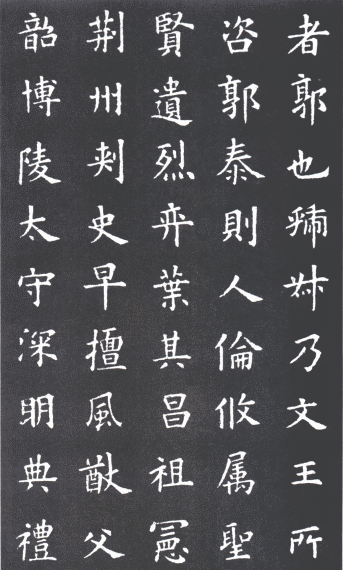 者郭也虢叔乃文王所
咨郭泰則人倫攸属聖
賢遺烈弈葉其昌祖憲
荆州刾史早擅風猷父
韶博陵太守深眀典禮